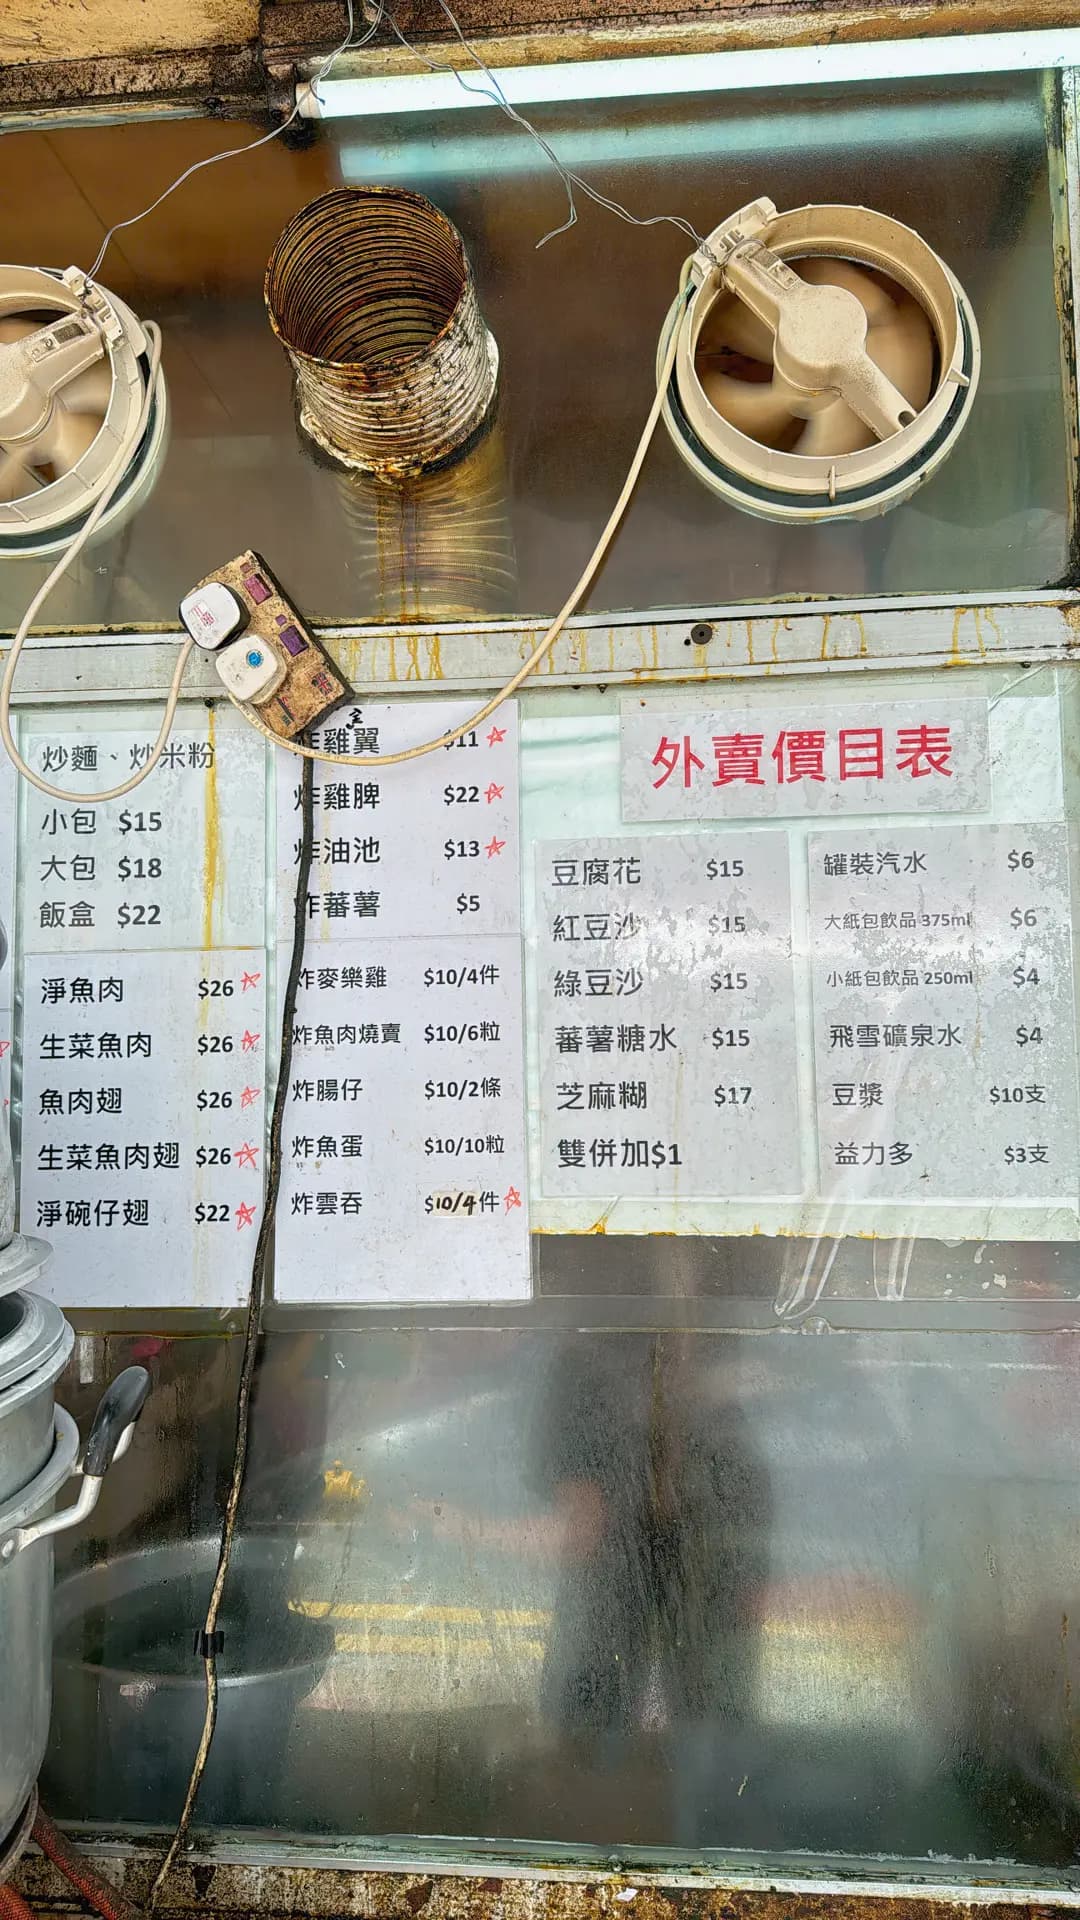 炒麵、炒米粉
小包 $15
大包 $18
飯盒 $22
淨魚肉 $26
生菜魚肉 $26
魚肉翅 $26
生菜魚肉翅 $26
淨碗仔翅 $22
炸雞翼 $11
炸雞脾 $22
炸油池 $13
炸蕃薯 $5
炸麥樂雞 $10/4件
炸魚肉燒賣 $10/6粒
炸腸仔 $10/2條
炸魚蛋 $10/10粒
炸雲吞 $10/4件
外賣價目表
豆腐花 $15
紅豆沙 $15
綠豆沙 $15
蕃薯糖水 $15
芝麻糊 $17
雙併加$1
罐裝汽水 $6
大紙包飲品 375ml $6
小紙包飲品 250ml $4
飛雪礦泉水 $4
豆漿 $10支
益力多 $3支